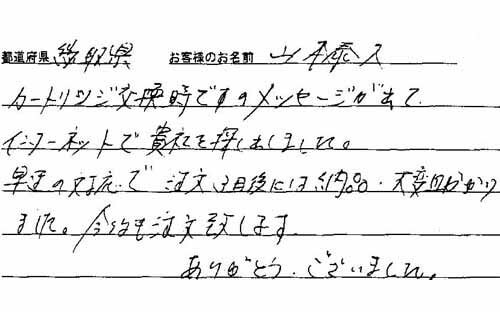 都道府県 鳥取県 お客様のお名前 山本泰久
カートリッジ交換時ですのメッセージが出て
インターネットで貴社を探し出しました。
早速の対応で注文、3日後には納品・大変助かり
ました。今後も注文致します
ありがとう、ございました。